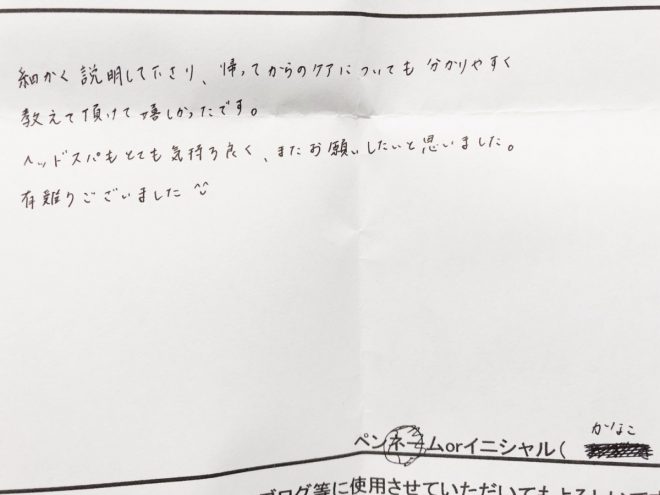 細かく説明して下さり、帰ってからのケアについても分かりやすく
教えて頂けて嬉しかったです。
ヘッドスパもとても気持ち良く、またお願いしたいと思いました。
有難うございました ^^
かなこ
ペンネームorイニシャル(
ブログ等に使用させていただいてもよろしいです